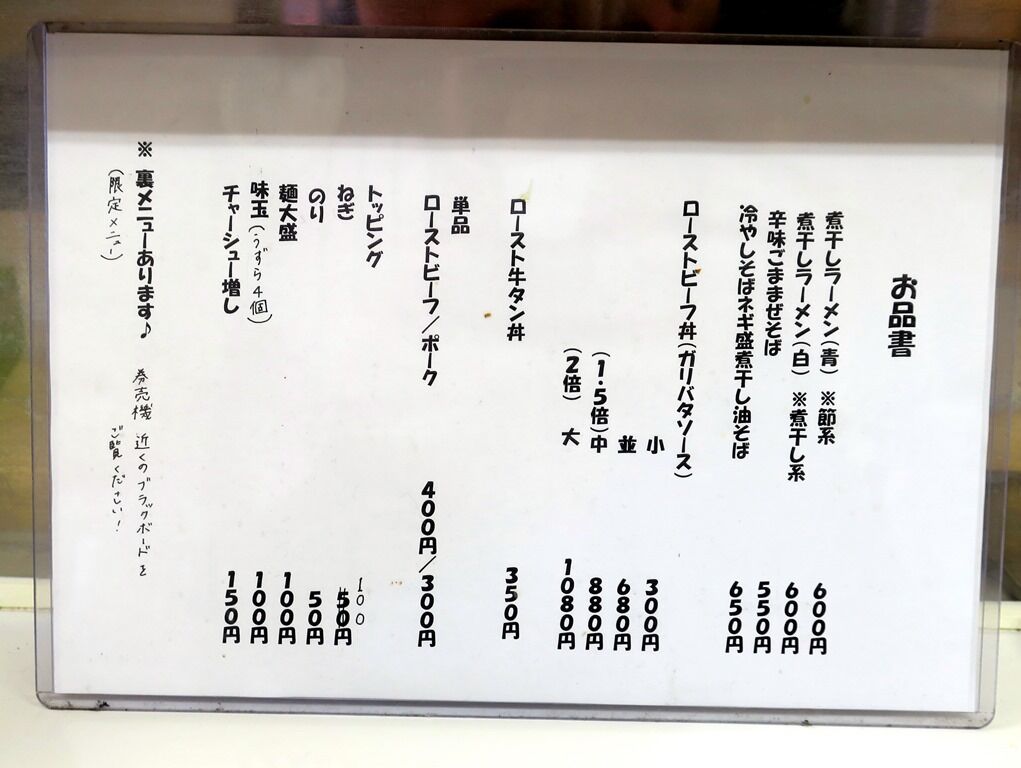 お品書
煮干しラーメン(青) ※節系 600円
煮干しラーメン(白) ※煮干し系 600円
辛味ごままぜそば 550円
冷やしそばネギ盛煮干し油そば 650円
ローストビーフ丼(ガリバタソース)
小 300円
並 680円
(1.5倍)中 880円
(2倍) 大 1080円
ロースト牛タン丼 350円
単品
ローストビーフ/ポーク 400円/300円
トッピング
ねぎ 50円 100
のり 50円
麺大盛 100円
味玉(うずら4個) 100円
チャーシュー増し 150円
※ 裏メニューあります♪ 券売機 近くのブラックボードを
(限定メニュー) ご覧ください!